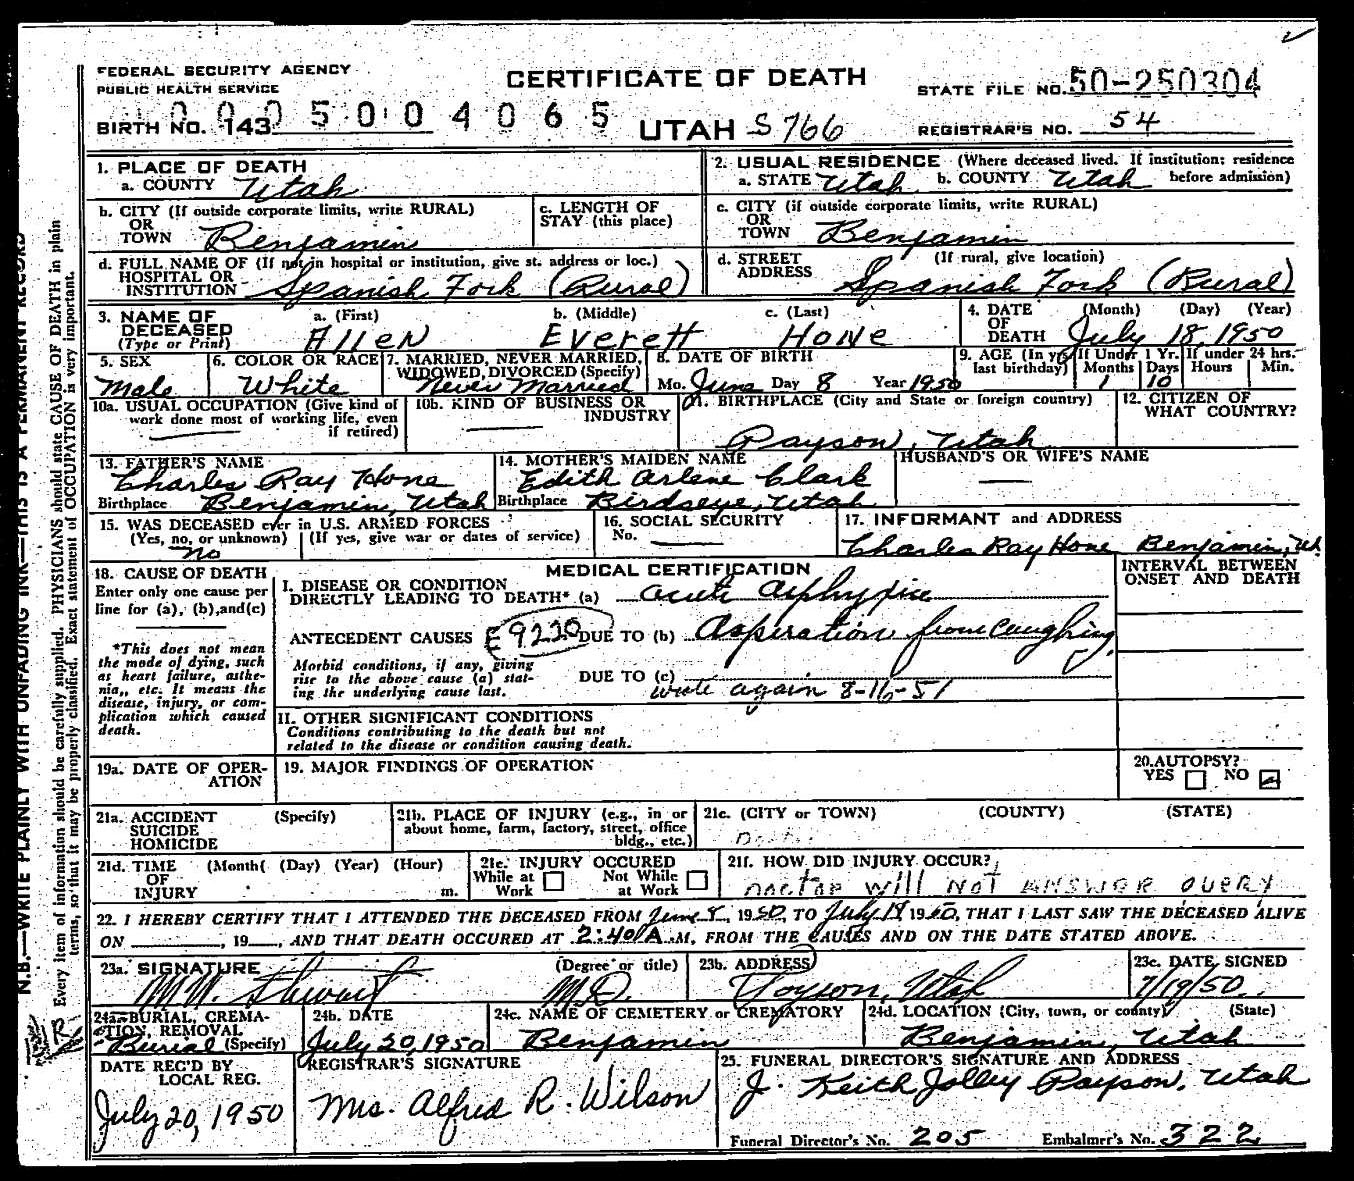 FEDERAL SECURITY AGENCY
PUBLIC HEALTH SERVICE
CERTIFICATE OF DEATH
STATE FILE NO. 50-250304
BIRTH NO. 143
5004065
UTAH S766
REGISTRAR'S NO. 54
1. PLACE OF DEATH
a. COUNTY Utah
2. USUAL RESIDENCE (Where deceased lived. If institution: residence
a. STATE Utah b. COUNTY Utah before admission)
b. CITY (If outside corporate limits, write RURAL)
OR
TOWN Benjamin
c. LENGTH OF
STAY (this place)
c. CITY (if outside corporate limits, write RURAL)
OR
TOWN Benjamin
d. FULL NAME OF (If not in hospital or institution, give st. address or loc.)
HOSPITAL OR
INSTITUTION Spanish Fork (Rural)
d. STREET (If rural, give location)
ADDRESS Spanish Fork (Rural)
3. NAME OF a. (First) b. (Middle) c. (Last)
DECEASED
(Type or Print) Allen Everett Hone
4. DATE (Month) (Day) (Year)
OF
DEATH July 18, 1950
5. SEX
Male
6. COLOR OR RACE
White
7. MARRIED, NEVER MARRIED,
WIDOWED, DIVORCED (Specify)
Never Married
8. DATE OF BIRTH
Mo. June Day 8 Year 1950
9. AGE (In yrs If Under 1 Yr. If under 24 hrs.
last birthday) Months Days Hours Min.
1 10
10a. USUAL OCCUPATION (Give kind of
work done most of working life, even
if retired)
10b. KIND OF BUSINESS OR
INDUSTRY
11. BIRTHPLACE (City and State or foreign country)
Payson, Utah
12. CITIZEN OF
WHAT COUNTRY?
13. FATHER'S NAME
Charles Ray Hone
Birthplace Benjamin, Utah
14. MOTHER'S MAIDEN NAME
Edith Arlene Clark
Birthplace Birdseye, Utah
HUSBAND'S OR WIFE'S NAME
15. WAS DECEASED ever in U.S. ARMED FORCES ?
(Yes, no, or unknown) (If yes, give war or dates of service)
No
16. SOCIAL SECURITY
No.
17. INFORMANT and ADDRESS
Charles Ray Hone Benjamin, Ut.
18. CAUSE OF DEATH
Enter only one cause per
line for (a), (b), and (c)
*This does not mean
the mode of dying, such
as heart failure, asthe-
nia, etc. It means the
disease, injury, or com-
plication which caused
death.
MEDICAL CERTIFICATION
I. DISEASE OR CONDITION
DIRECTLY LEADING TO DEATH* (a) acute asphyxia
ANTECEDENT CAUSES E9220 DUE TO (b) Aspiration from coughing
Morbid conditions, if any, giving
rise to the above cause (a) stat-
ing the underlying cause last.
DUE TO (c)
wrote again 8-16-51
INTERVAL BETWEEN
ONSET AND DEATH
II. OTHER SIGNIFICANT CONDITIONS
Conditions contributing to the death but not
related to the disease or condition causing death.
19a. DATE OF OPER-
ATION
19. MAJOR FINDINGS OF OPERATION
20. AUTOPSY?
YES NO
21a. ACCIDENT (Specify)
SUICIDE
HOMICIDE
21b. PLACE OF INJURY (e.g., in or
about home, farm, factory, street, office
bldg., etc.)
21c. (CITY or TOWN) (COUNTY) (STATE)
21d. TIME (Month) (Day) (Year) (Hour)
OF
INJURY m.
21e. INJURY OCCURED
While at Not While
Work at Work
21f. HOW DID INJURY OCCUR?
Doctor will not answer query
22. I HEREBY CERTIFY THAT I ATTENDED THE DECEASED FROM June 8, 1950, TO July 18 1950, THAT I LAST SAW THE DECEASED ALIVE
ON , 19 , AND THAT DEATH OCCURED AT 2:40 A.M, FROM THE CAUSES AND ON THE DATE STATED ABOVE.
23a. SIGNATURE (Degree or title)
M.W. Stewart M.D.
23b. ADDRESS
Payson, Utah
23c. DATE SIGNED
7/19/50
24a. BURIAL, CREMA-
TION, REMOVAL
Burial (Specify)
24b. DATE
July 20, 1950
24c. NAME OF CEMETERY or CREMATORY
Benjamin
24d. LOCATION (City, town, or county) (State)
Benjamin, Utah
DATE REC'D BY
LOCAL REG.
July 20, 1950
REGISTRAR'S SIGNATURE
Mrs. Alfred R. Wilson
25. FUNERAL DIRECTOR'S SIGNATURE AND ADDRESS
J. Keith Jolley Payson, Utah
Funeral Director's No. 205 Embalmer's No. 322
N.B.—WRITE PLAINLY WITH UNFADING INK—THIS IS A PERMANENT RECORD
Every item of information should be carefully supplied. PHYSICIANS should state CAUSE OF DEATH in plain
terms, so that it may be properly classified. Exact statement of OCCUPATION is very important.